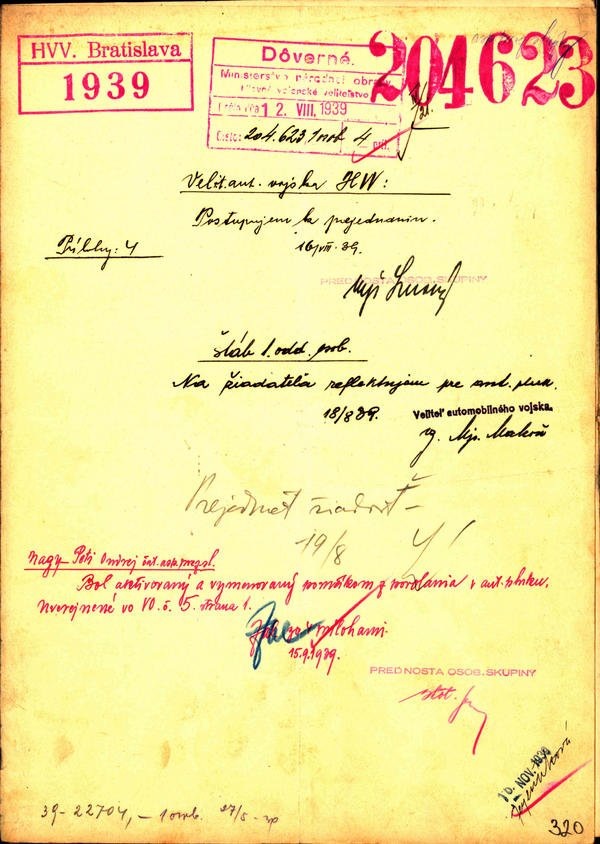 HVV. Bratislava
1939
Dôverné.
Ministerstvo národnej obrany
Hlavné vojenské veliteľstvo
12. VIII. 1939
Číslo: 204.623 1 osob 4 príl.
204623
Velit. aut. vojska HVV:
Postupujem k prejednaniu.
Prílohy: 4
16/VIII. 39.
PREDNOSTA OSOB. SKUPINY
Štáb 1. odd. osob.
Na žiadateľa reflektujem pre aut. pluk.
18/8 39.
Veliteľ automobilného vojska.
Mjr.
Prejednať žiadosť
19/8
Nagy Peti Ondrej
Bol aktivovaný a vymenovaný z povolania v aut. pluku.
Uverejnené vo VO. č. 5. strana 1.
prílohami.
15.9.1939.
PREDNOSTA OSOB. SKUPINY
stot.
NOV. 1939
39-22704,- 1 osob. 27/5
320